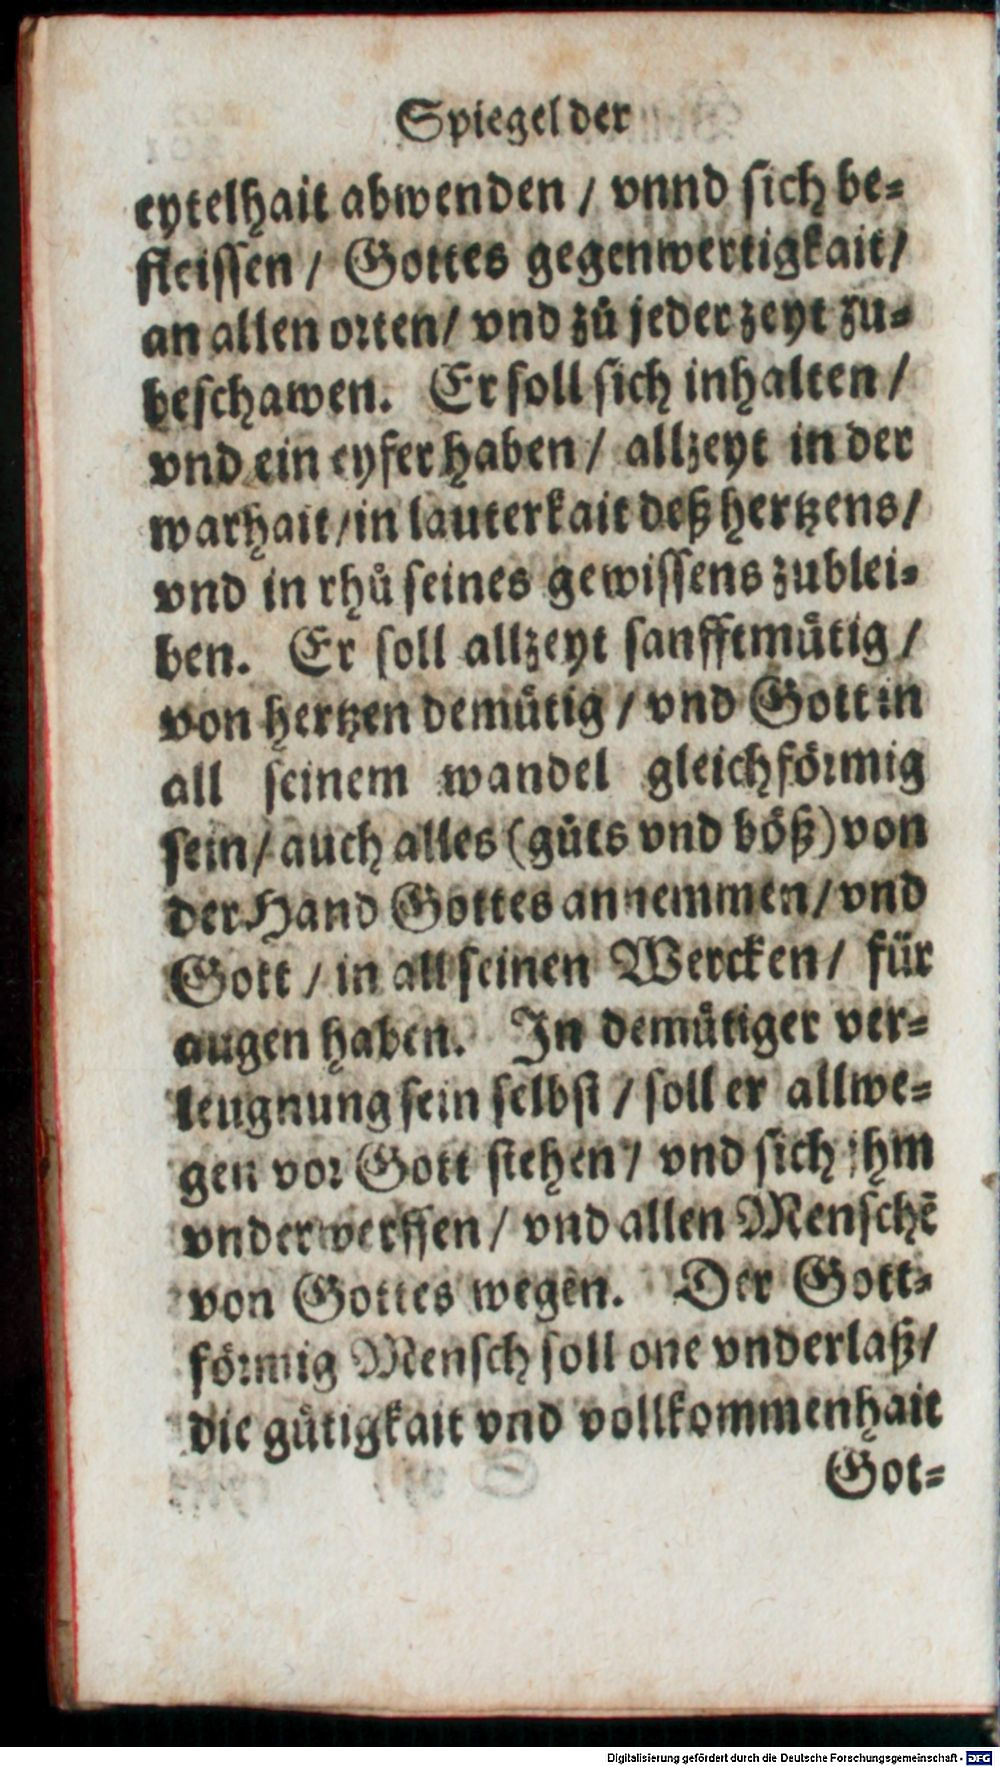 Spiegel der
eytelhait abwenden / vnnd sich be-
fleissen / Gottes gegenwertigkait /
an allen orten / vnd zů jeder zeyt zu-
beschawen. Er soll sich inhalten /
vnd ein eyfer haben / allzeyt in der
warhait / in lauterkait deß hertzens /
vnd in rhů seines gewissens zublei-
ben. Er soll allzeyt sanfftmůtig /
von hertzen demůtig / vnd Gott in
all seinem wandel gleichförmig
sein / auch alles (gůts vnd böß) von
der Hand Gottes annemmen / vnd
Gott / in all seinen Wercken / für
augen haben. In demůtiger ver-
leugnung sein selbst / soll er allwe-
gen vor Gott stehen / vnd sich jhm
vnderwerffen / vnd allen Menschē
von Gottes wegen. Der Gott-
förmig Mensch soll one vnderlaß /
die gůtigkait vnd vollkommenhait
Got-
Digitalisierung gefördert durch die Deutsche Forschungsgemeinschaft - DFG